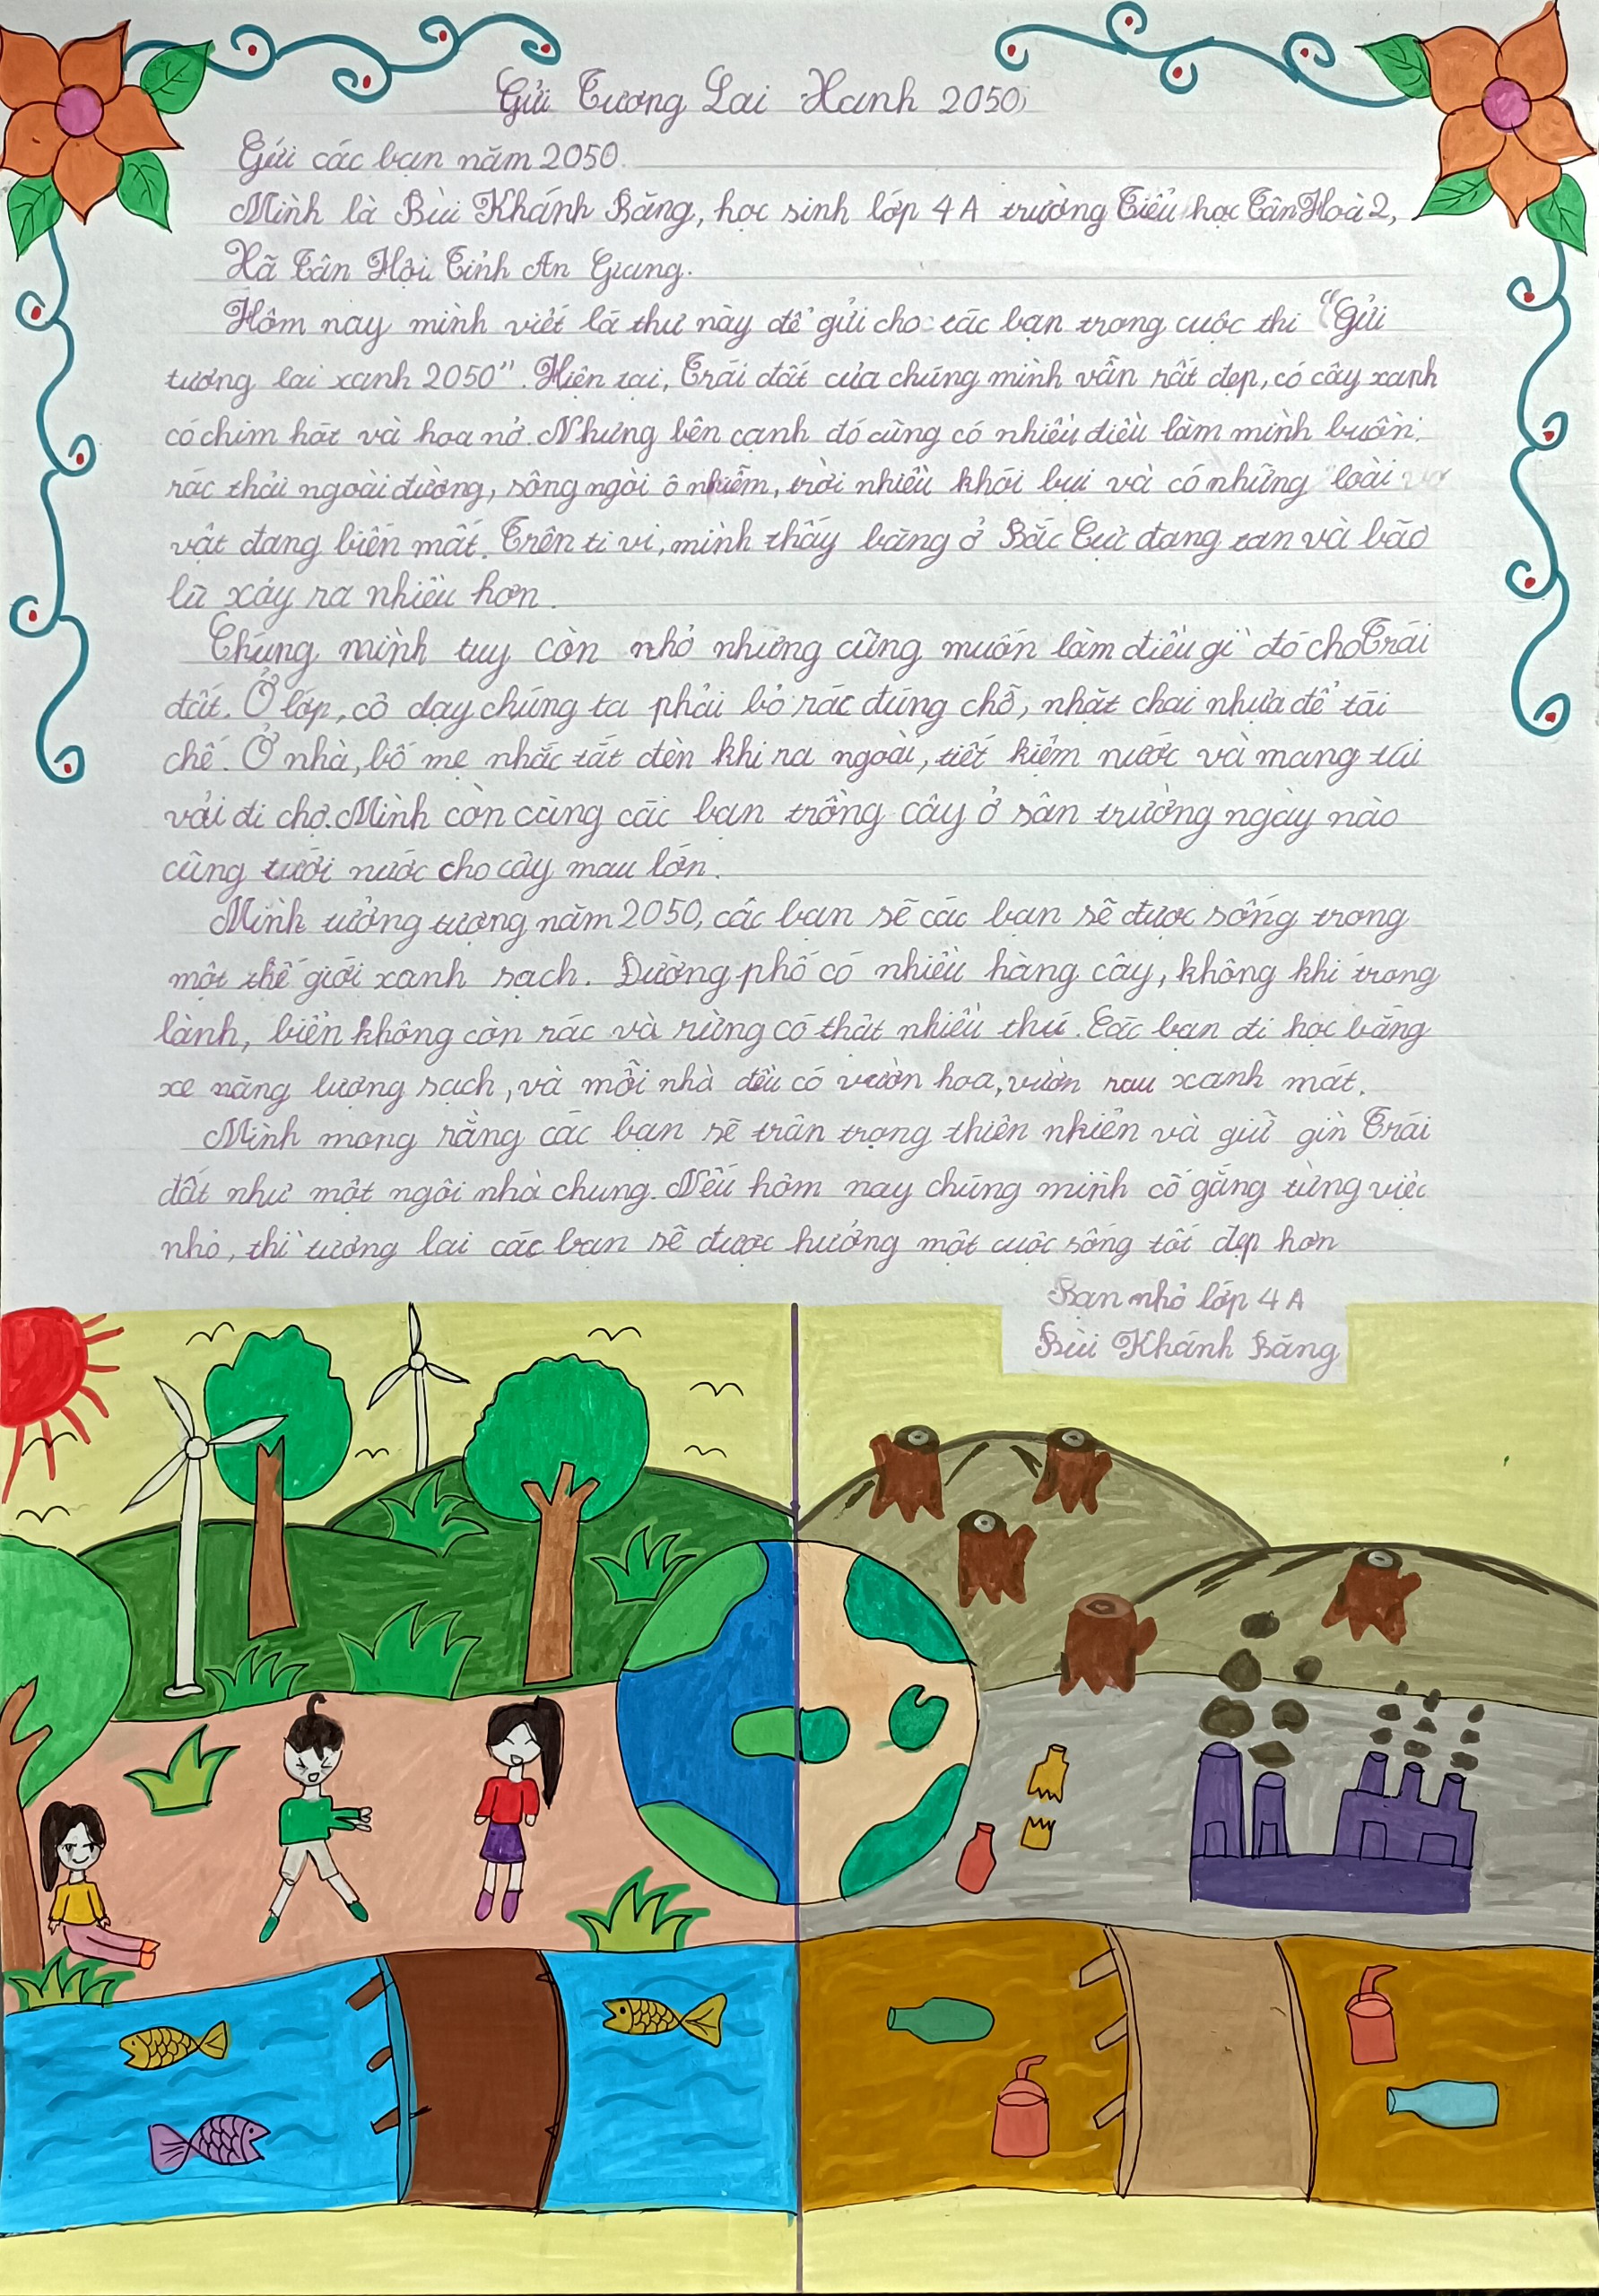 Gửi Tương Lai Xanh 2050
Gửi các bạn năm 2050.
Mình là Bùi Khánh Băng, học sinh lớp 4A trường Tiểu học Tân Hoà 2,
Xã Tân Hội Tỉnh An Giang.
Hôm nay mình viết lá thư này để gửi cho các bạn trong cuộc thi "Gửi
tương lai xanh 2050". Hiện tại, Trái đất của chúng mình vẫn rất đẹp, có cây xanh
có chim hát và hoa nở. Nhưng bên cạnh đó cũng có nhiều điều làm mình buồn:
rác thải ngoài đường, sông ngòi ô nhiễm, trời nhiều khói bụi và có những loài
vật đang biến mất. Trên ti vi, mình thấy băng ở Bắc Cực đang tan và bão
lũ xảy ra nhiều hơn.
Chúng mình tuy còn nhỏ nhưng cũng muốn làm điều gì đó cho Trái
đất. Ở lớp, cô dạy chúng ta phải bỏ rác đúng chỗ, nhặt chai nhựa để tái
chế. Ở nhà, bố mẹ nhắc tắt đèn khi ra ngoài, tiết kiệm nước và mang túi
vải đi chợ. Mình còn cùng các bạn trồng cây ở sân trường ngày nào
cũng tưới nước cho cây mau lớn.
Mình tưởng tượng năm 2050, các bạn sẽ các bạn sẽ được sống trong
một thế giới xanh sạch. Đường phố có nhiều hàng cây, không khí trong
lành, biển không còn rác và rừng có thật nhiều thú. Các bạn đi học bằng
xe năng lượng sạch, và mỗi nhà đều có vườn hoa, vườn rau xanh mát.
Mình mong rằng các bạn sẽ trân trọng thiên nhiên và giữ gìn Trái
đất như một ngôi nhà chung. Nếu hôm nay chúng mình cố gắng từng việc
nhỏ, thì tương lai các bạn sẽ được hưởng một cuộc sống tốt đẹp hơn
Bạn nhỏ lớp 4A
Bùi Khánh Băng